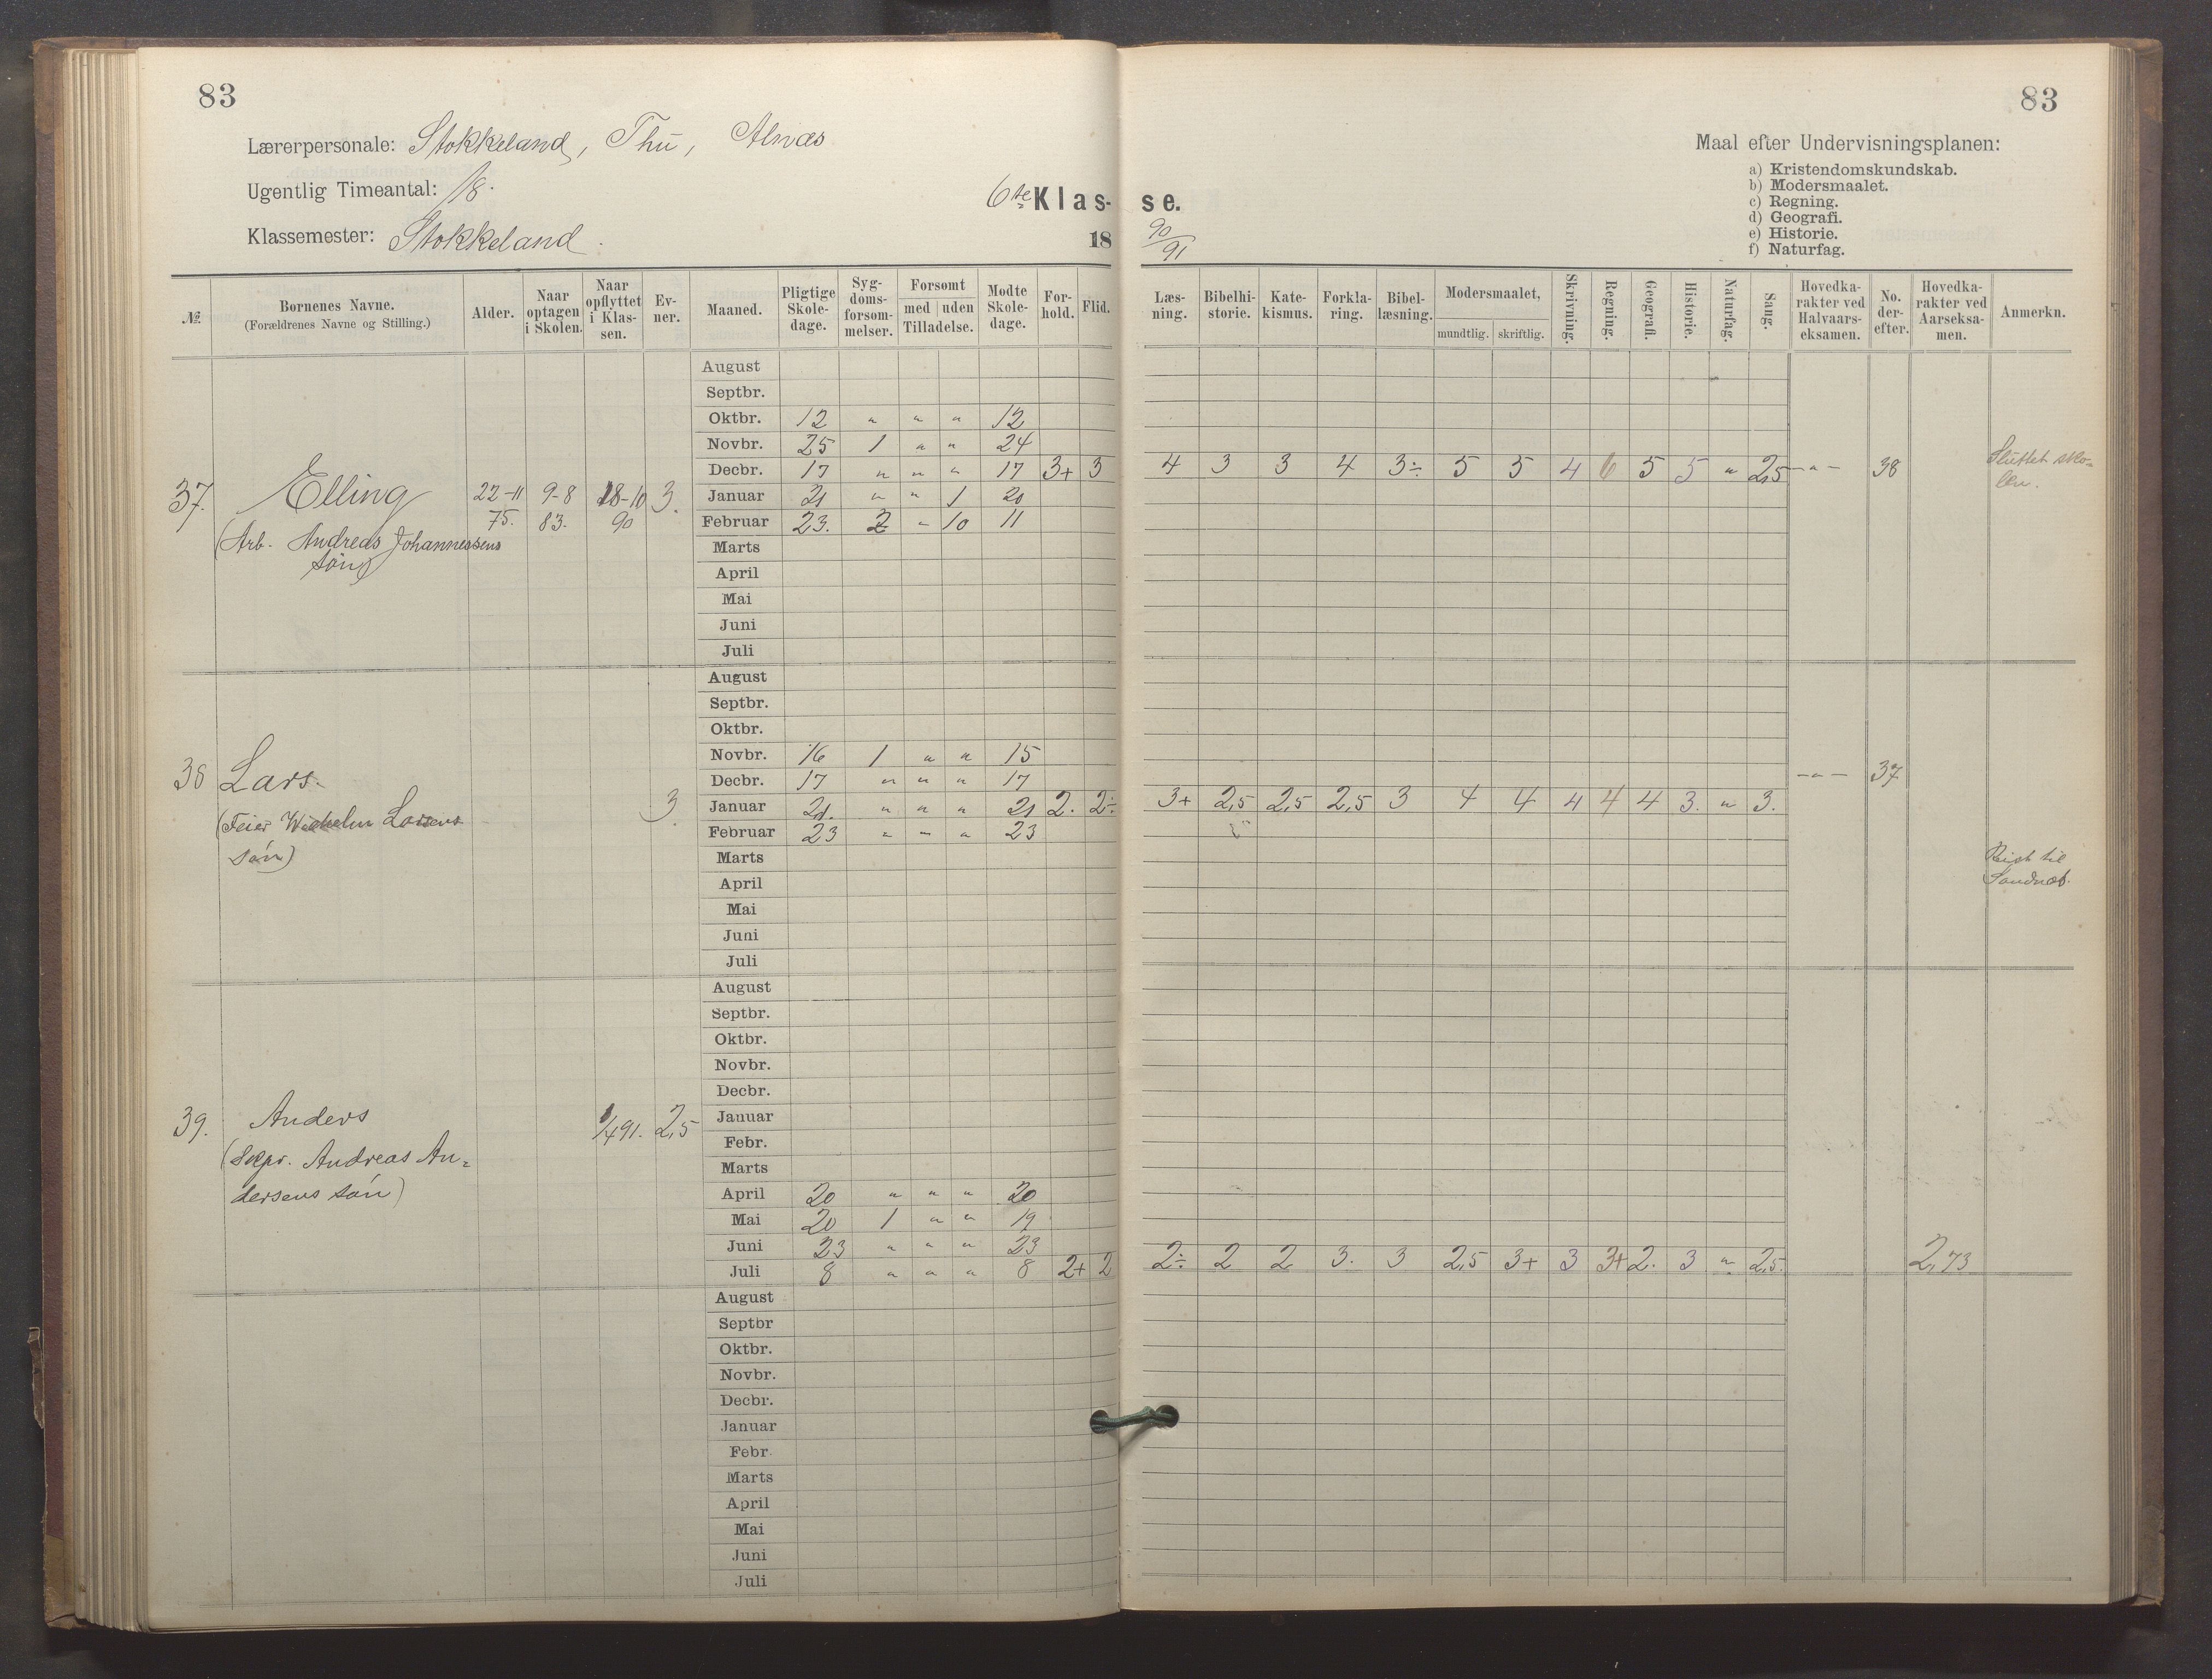 83
83
Lærerpersonale: Stokkeland, Thu, Alnæs
Ugentlig Timeantal: 18.
Klassemester: Stokkeland.
6te Klas- se.
18 90/91
Maal efter Undervisningsplanen:
a) Kristendomskundskab.
b) Modersmaalet.
c) Regning.
d) Geografi.
e) Historie.
f) Naturfag.
№ Børnenes Navne. (Forældrenes Navne og Stilling.) Alder. Naar optagen i Skolen. Naar opflyttet i Klassen. Ev-ner. Maaned. Pligtige Skole-dage. Syg-doms-forsøm-melser. Forsømt med uden Tilladelse. Mødte Skole-dage. For-hold. Flid. Læs-ning. Bibelhi-storie. Kate-kismus. Forkla-ring. Bibel-læsning. Modersmaalet, mundtlig. skriftlig. Skrivning. Regning. Geografi. Historie. Naturfag. Sang. Hovedka-rakter ved Halvaars-eksamen. No. der-efter. Hovedka-rakter ved Aarseksa-men. Anmerkn.
August
Septbr.
Oktbr. 12 " " " 12
Novbr. 25 1 " " 24
Decbr. 17 " " " 17 3+ 3 4 3 3 4 3÷ 5 5 4 6 5 5 " 2,5 -"- 38 Sluttet sko-
len.
37. Elling 22-11 9-8 18-10 3. Januar 21 " " 1 20
75. 83. 90 Februar 23. 2 - 10 11
(Arb. Andreas Johannessens Marts
søn) April
Mai
Juni
Juli
August
Septbr.
Oktbr.
Novbr. 16 1 " " 15
38 Lars. Decbr. 17 " " " 17 -"- 37
3. Januar 21. " " " 21 2. 2÷ 3+ 2,5 2,5 2,5 3 4 4 4 4 4 3. " 3.
(Feier Wilhelm Larsens Februar 23 " - " 23
søn) Marts Reist til
April Sandnæs.
Mai
Juni
Juli
August
Septbr.
Oktbr.
Novbr.
Decbr.
39. Anders 1/4 91. 2,5 Januar
Febr.
(Skpr. Andreas An- Marts
dersens søn) April 20 " " " 20
Mai 20 1 " " 19
Juni 23 " " " 23
Juli 8 " " " 8 2+ 2 2÷ 2 2 3. 3 2,5 3+ 3 3+ 2. 3 " 2,5. 2,73
August
Septbr
Oktbr.
Novbr.
Decbr.
Januar
Febr.
Marts
April
Mai
Juni
Juli